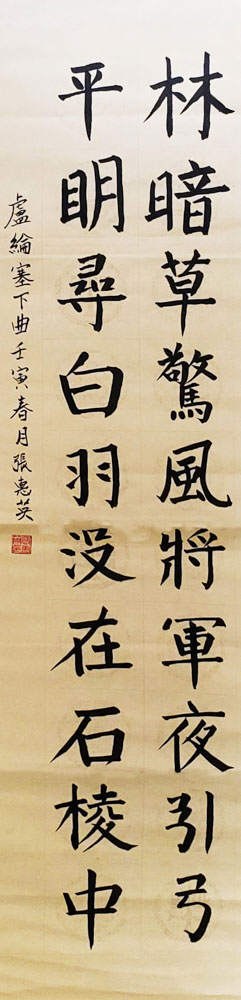 林暗草驚風將軍夜引弓
平明尋白羽没在石棱中
盧綸塞下曲壬寅春月張惠英